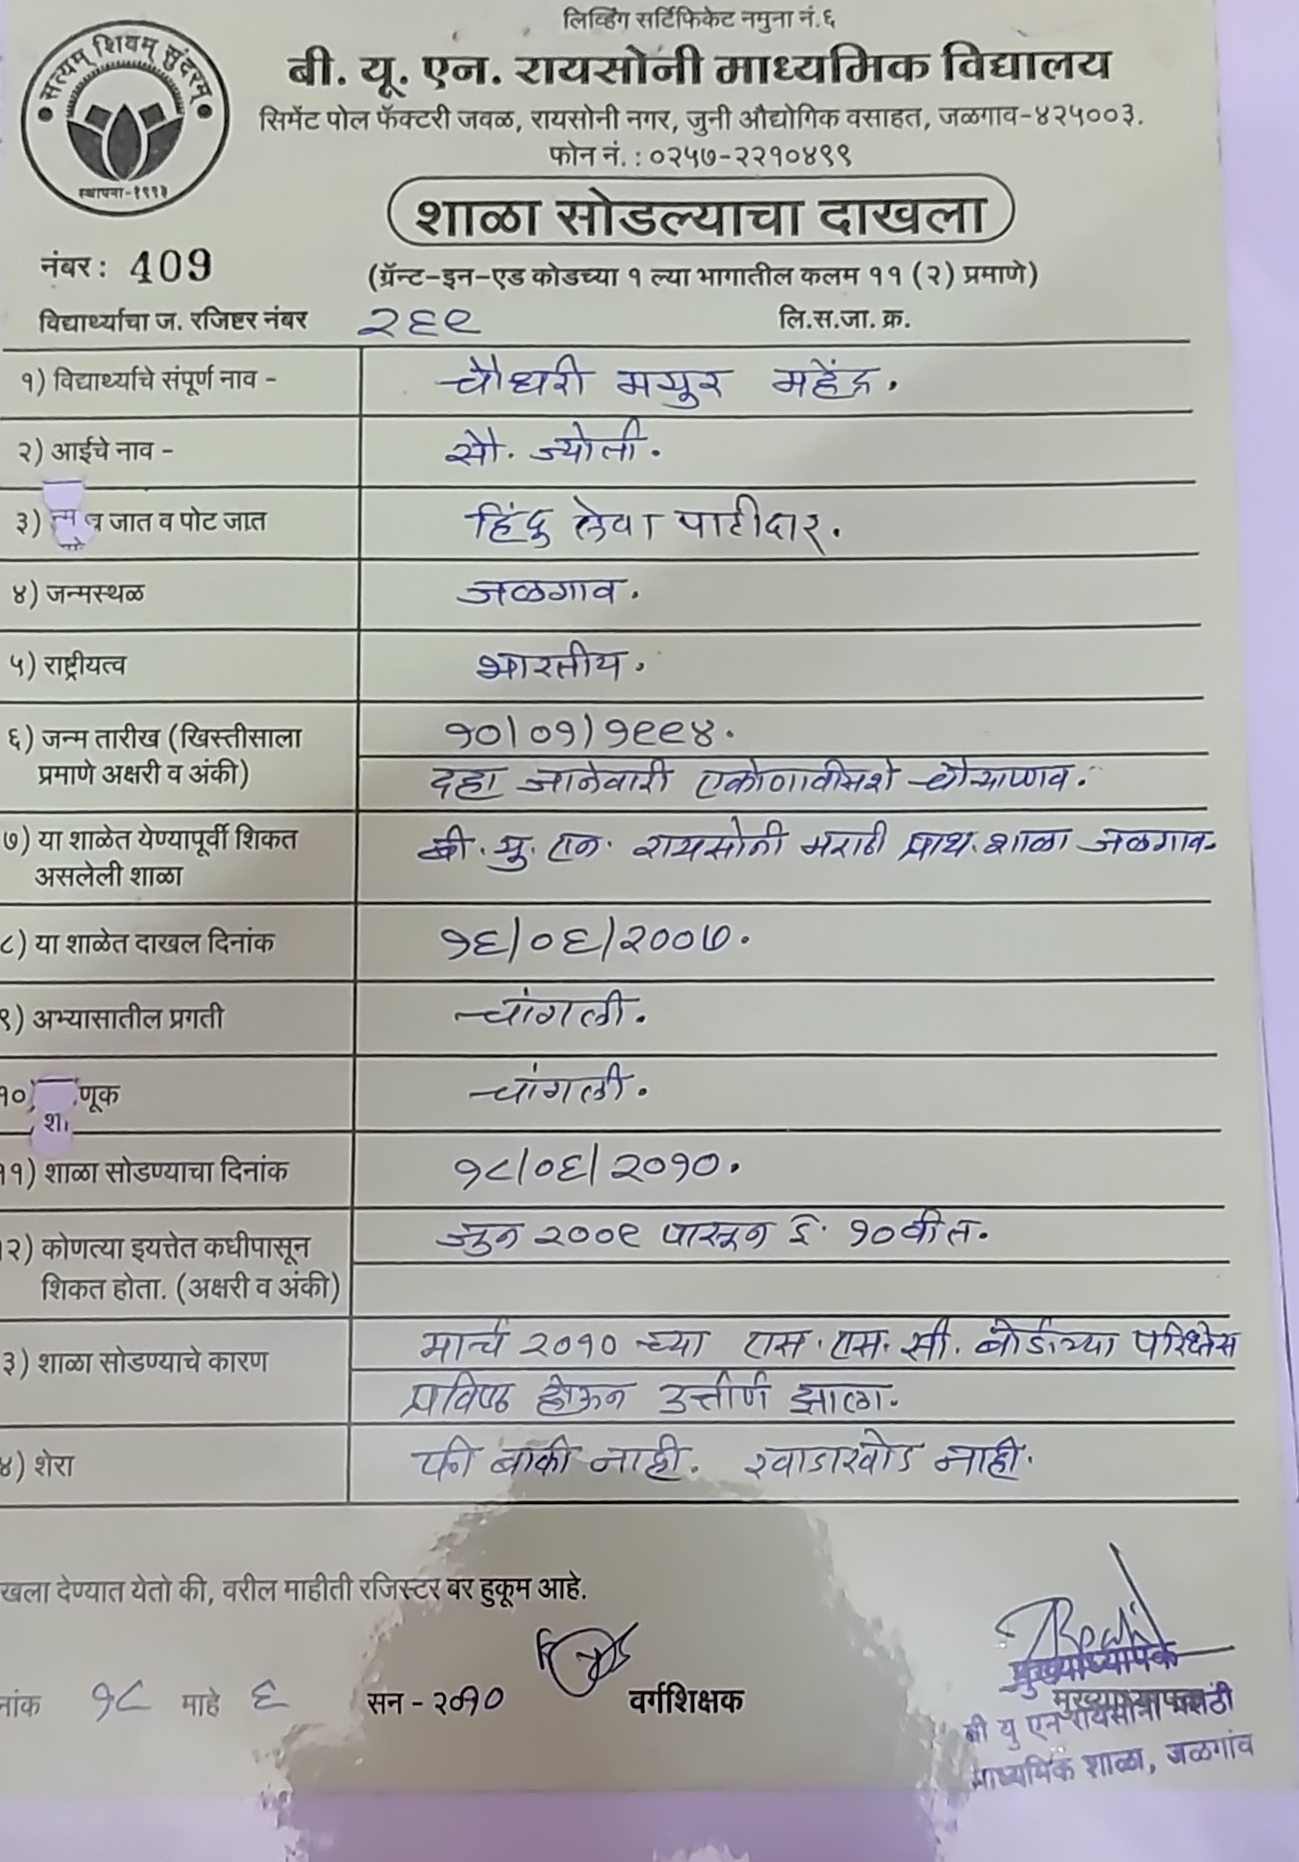 लिव्हिंग सर्टिफिकेट नमुना नं.६
सत्यम् शिवम् सुंदरम्
स्थापना-१९९३
बी. यू. एन. रायसोनी माध्यमिक विद्यालय
सिमेंट पोल फॅक्टरी जवळ, रायसोनी नगर, जुनी औद्योगिक वसाहत, जळगाव-४२५००३.
फोन नं. : ०२५७-२२१०४९९
शाळा सोडल्याचा दाखला
नंबर : 409
(ग्रॅन्ट-इन-एड कोडच्या १ ल्या भागातील कलम ११ (२) प्रमाणे)
विद्यार्थ्याचा ज. रजिष्टर नंबर २६९ लि.स.जा. क्र.
१) विद्यार्थ्याचे संपूर्ण नाव - चौधरी मयुर महेंद्र.
२) आईचे नाव - सौ. ज्योती.
३) त्र जात व पोट जात हिंदु लेवा पाटीदार.
४) जन्मस्थळ जळगाव.
५) राष्ट्रीयत्व भारतीय.
६) जन्म तारीख (खिस्तीसाला १०/०१/१९९४.
प्रमाणे अक्षरी व अंकी) दहा जानेवारी एकोणावीसशे चौऱ्याण्णव.
७) या शाळेत येण्यापूर्वी शिकत बी. यु. एन. रायसोनी मराठी प्राथ. शाळा जळगाव.
असलेली शाळा
८) या शाळेत दाखल दिनांक १६/०६/२००७.
९) अभ्यासातील प्रगती चांगली.
१०) णूक चांगली.
११) शाळा सोडण्याचा दिनांक १८/०६/२०१०.
१२) कोणत्या इयत्तेत कधीपासून जुन २००९ पासून इ. १०वीत.
शिकत होता. (अक्षरी व अंकी)
३) शाळा सोडण्याचे कारण मार्च २०१० च्या एस. एस. सी. बोर्डाच्या परिक्षेस
प्रविष्ठ होऊन उत्तीर्ण झाला.
४) शेरा फी बाकी नाही. खाडाखोड नाही.
खला देण्यात येतो की, वरील माहीती रजिस्टर बर हुकूम आहे.
नांक १८ माहे ६ सन - २०१० वर्गशिक्षक
मुख्याध्यापक
मुख्याध्यापक
बी यु एन रायसोनी मराठी
माध्यमिक शाळा, जळगांव